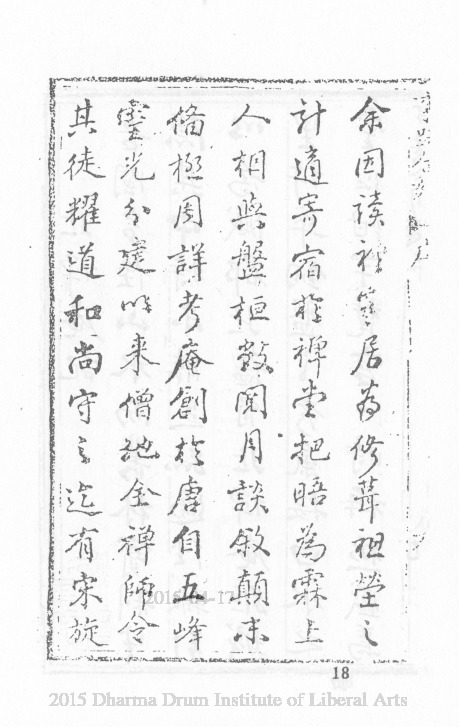 余因讀禮家居為修葺祖塋之
計適寄宿於禪堂把晤為霖上
人相與盤桓數閱月談敘顛末
備極周詳考庵創於唐自五峰
靈光分建以来僧地全禪師令
其徒耀道和尚守之迄有宋旋
18
2015 Dharma Drum Institute of Liberal Arts